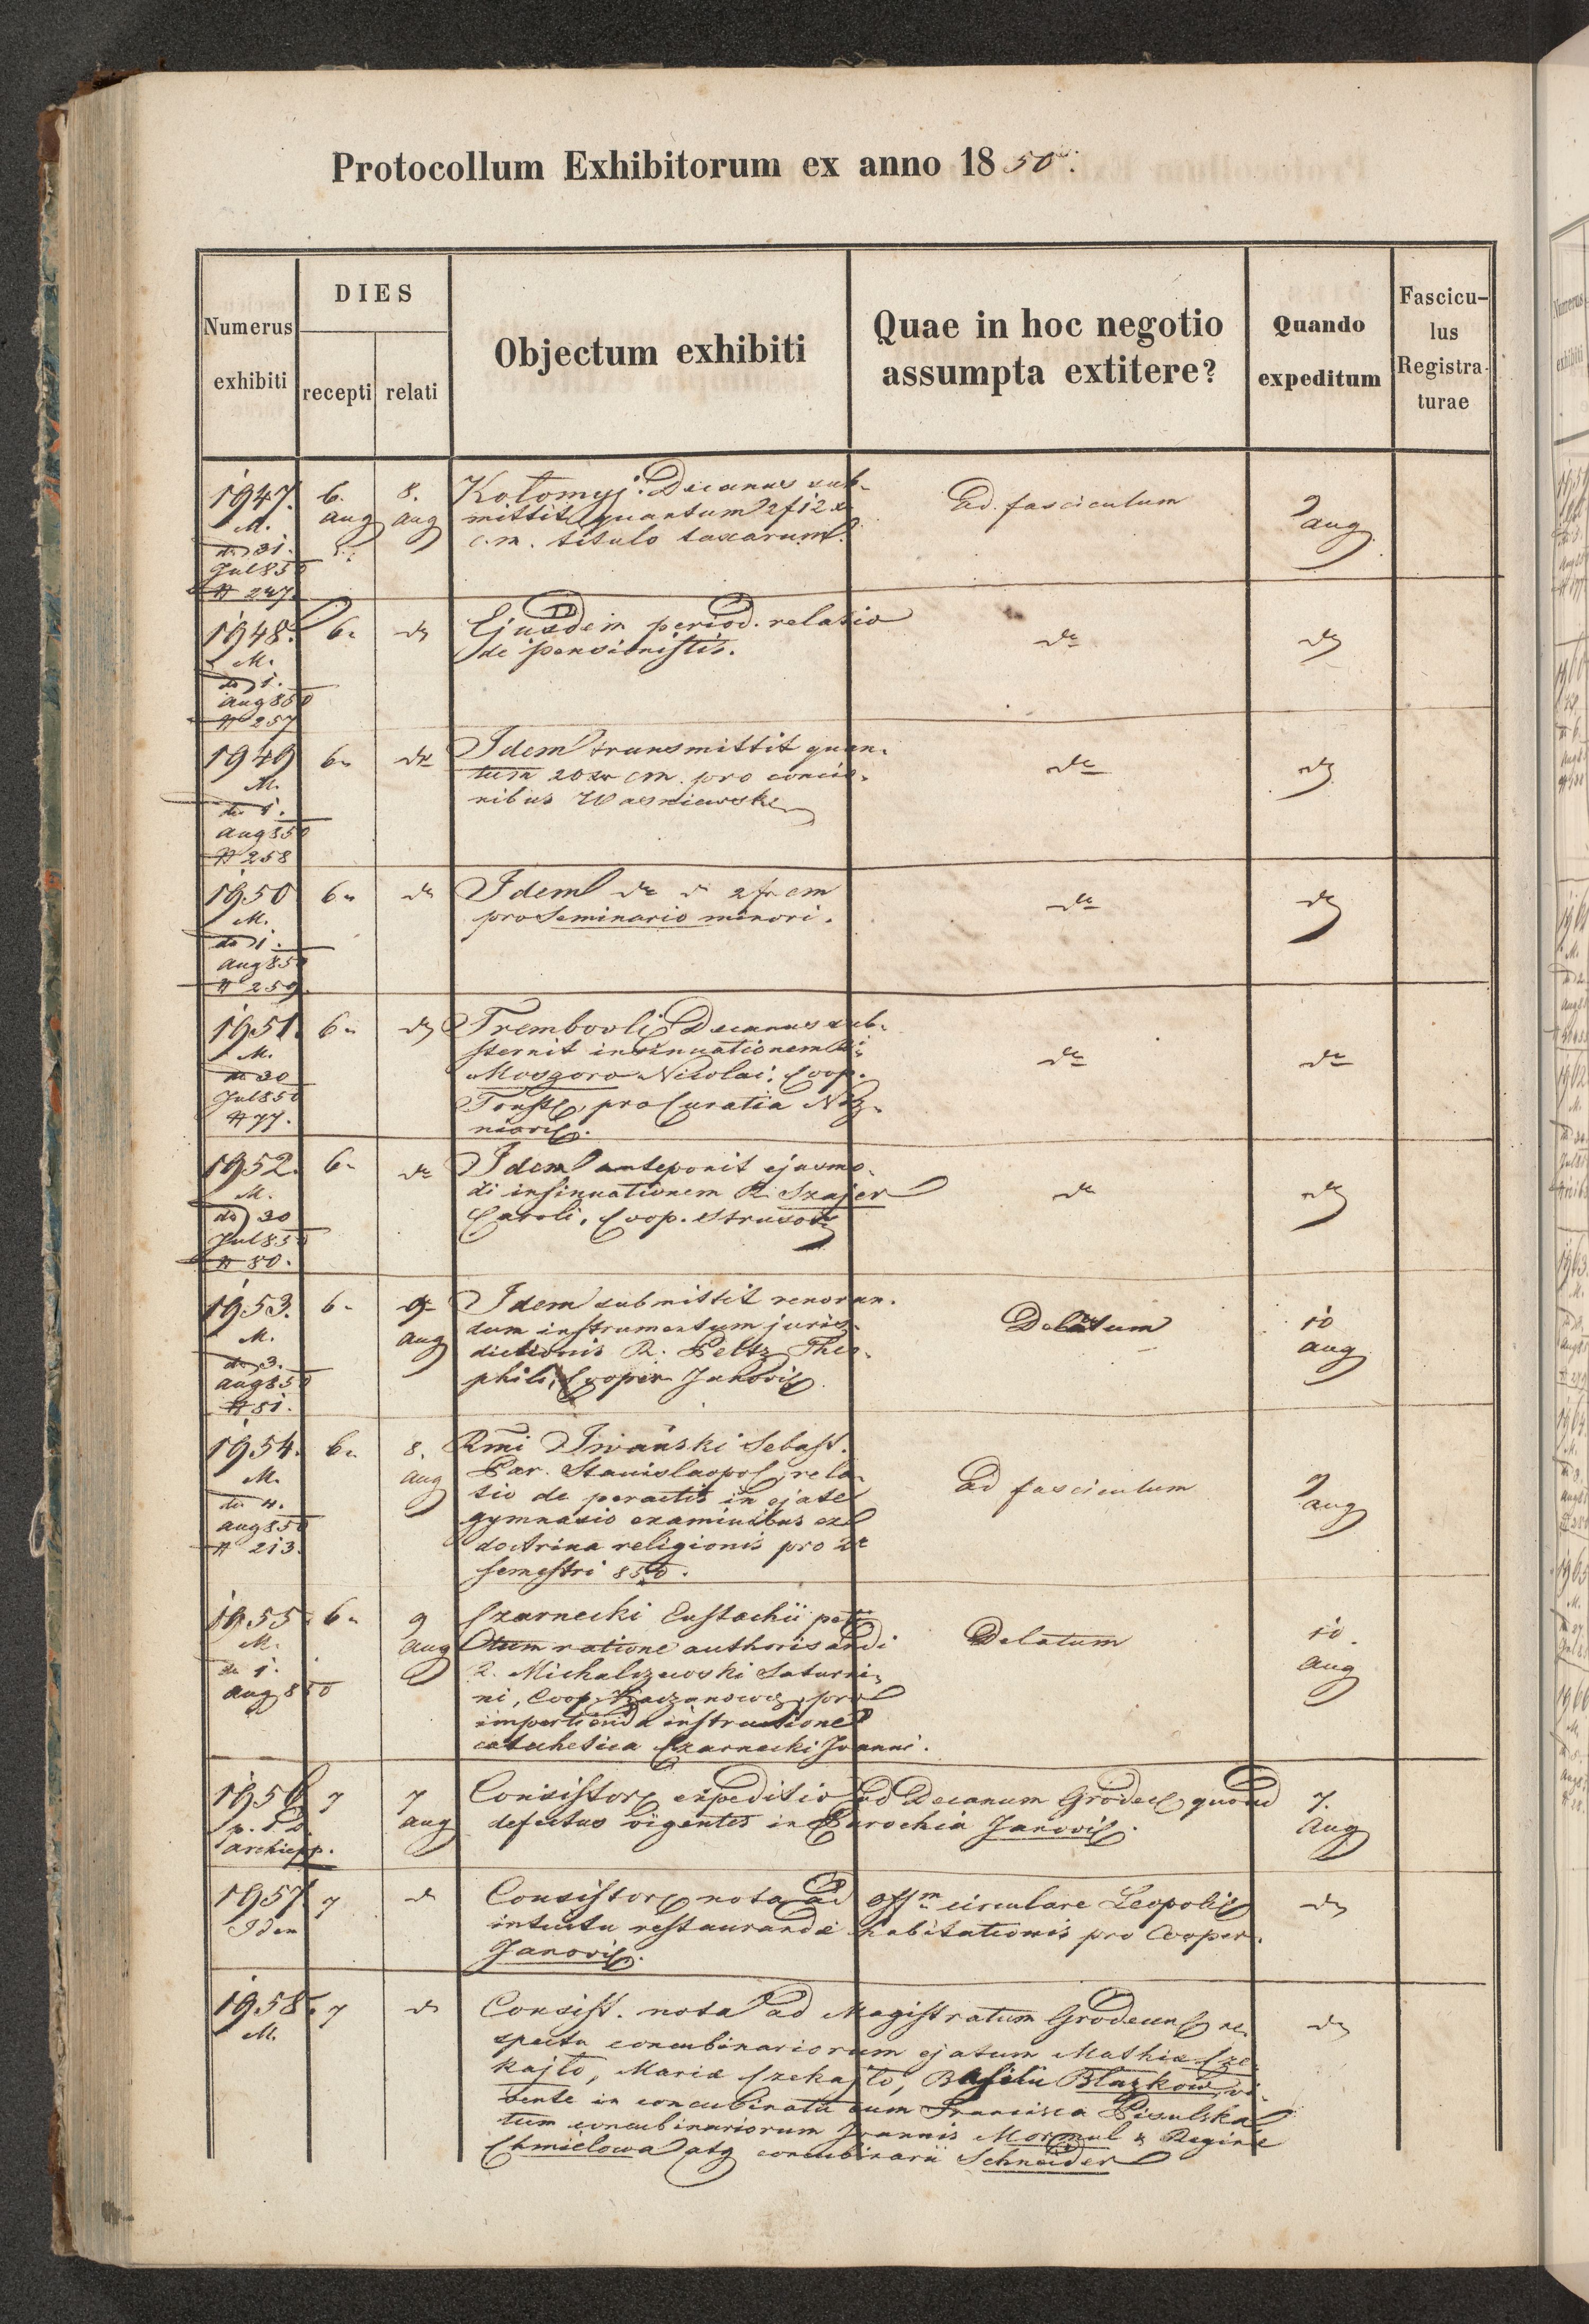 Protocollum Exhibitorum ex anno 1850.
Numerus exhibiti
DIES
recepti
relati
Objectum exhibiti
Quae in hoc negotio
assumpta extitere?
Quando
expeditum
Fascicu-
lus
Registra-
turae
1947.
M.
do 31.
Jul 850
# 247.
6.
aug
8.
aug
Kołomyj. Decanus sub-
mittit quantum 2 f 12 x
c.m. titulo taxarum.
Ad fasciculum
9
aug
1948.
M.
do 1.
aug 850
# 257
6.
do
Ejusdem period. relatio
de pensionistis.
do
do
1949
M.
do 1.
aug 850
# 258
6.
do
Idem transmittit quan-
tum 20 xr cm. pro concio-
nibus Wasniewski
do
do
1950
M.
do 1.
aug 850
# 259.
6.
do
Idem do 2 fr cm
pro Seminario minori.
do
do
1951.
M.
do 30
Jul 850
# 77.
6.
do
Trembovli Decanus sub-
sternit insinuationem
Mosgoro Nicolai, Coop.
pro Curatia
do
do
1952.
M.
do 30
Jul 850
# 80.
6.
do
Idem anteponit ejusmo-
di insinuationem R. Szajer
Caroli, Coop. Strusov
do
do
1953.
M.
do 3.
aug 850
# 81.
6.
9
aug
Idem submittit renovan-
dum instrumentum juris-
dictionis R. Peltz Theo-
phili, Cooper. Janovis
Delatum
10
aug
1954.
M.
do 4.
aug 850
# 213.
6.
8.
aug
Rmi Iwański Sebast.
Par. Stanislaopol, rela-
tio de peractis in ejate
gymnasio examinibus ex
doctrina religionis pro 2
semestri 850.
Ad fasciculum
9
aug
1955
M.
do 1.
aug 850
6.
9
aug
Czarnecki Eustachii peti-
tum ratione authorisandi
R. Michalczewski Saturni-
ni, Coop. pro
impertienda instructione
catechetica Czarnecki Joanni.
Delatum
10.
aug
1956
archiepp.
7
7
aug
Consistor expeditio ad Decanum Grodec quoad
defectus vigentes in Parochia Janovis.
7.
aug
1957
Idem
7
do
Consistor nota ad offm circulare Leopolis
intuitu restaurandæ habitationis pro Cooper.
Janovis.
do
1958.
M.
7
do
Consist. nota ad Magistratum Grodecens re-
spectu concubinariorum ejatum Mathiæ Cze-
kajło, Mariæ Czekajło, Basilii Błazkow, vi-
vente in concubinatu cum Francisca Pisulska
tum concubinariorum Joannis Mormul & Reginæ
Chmielowa atq concubinarii Schneider
do